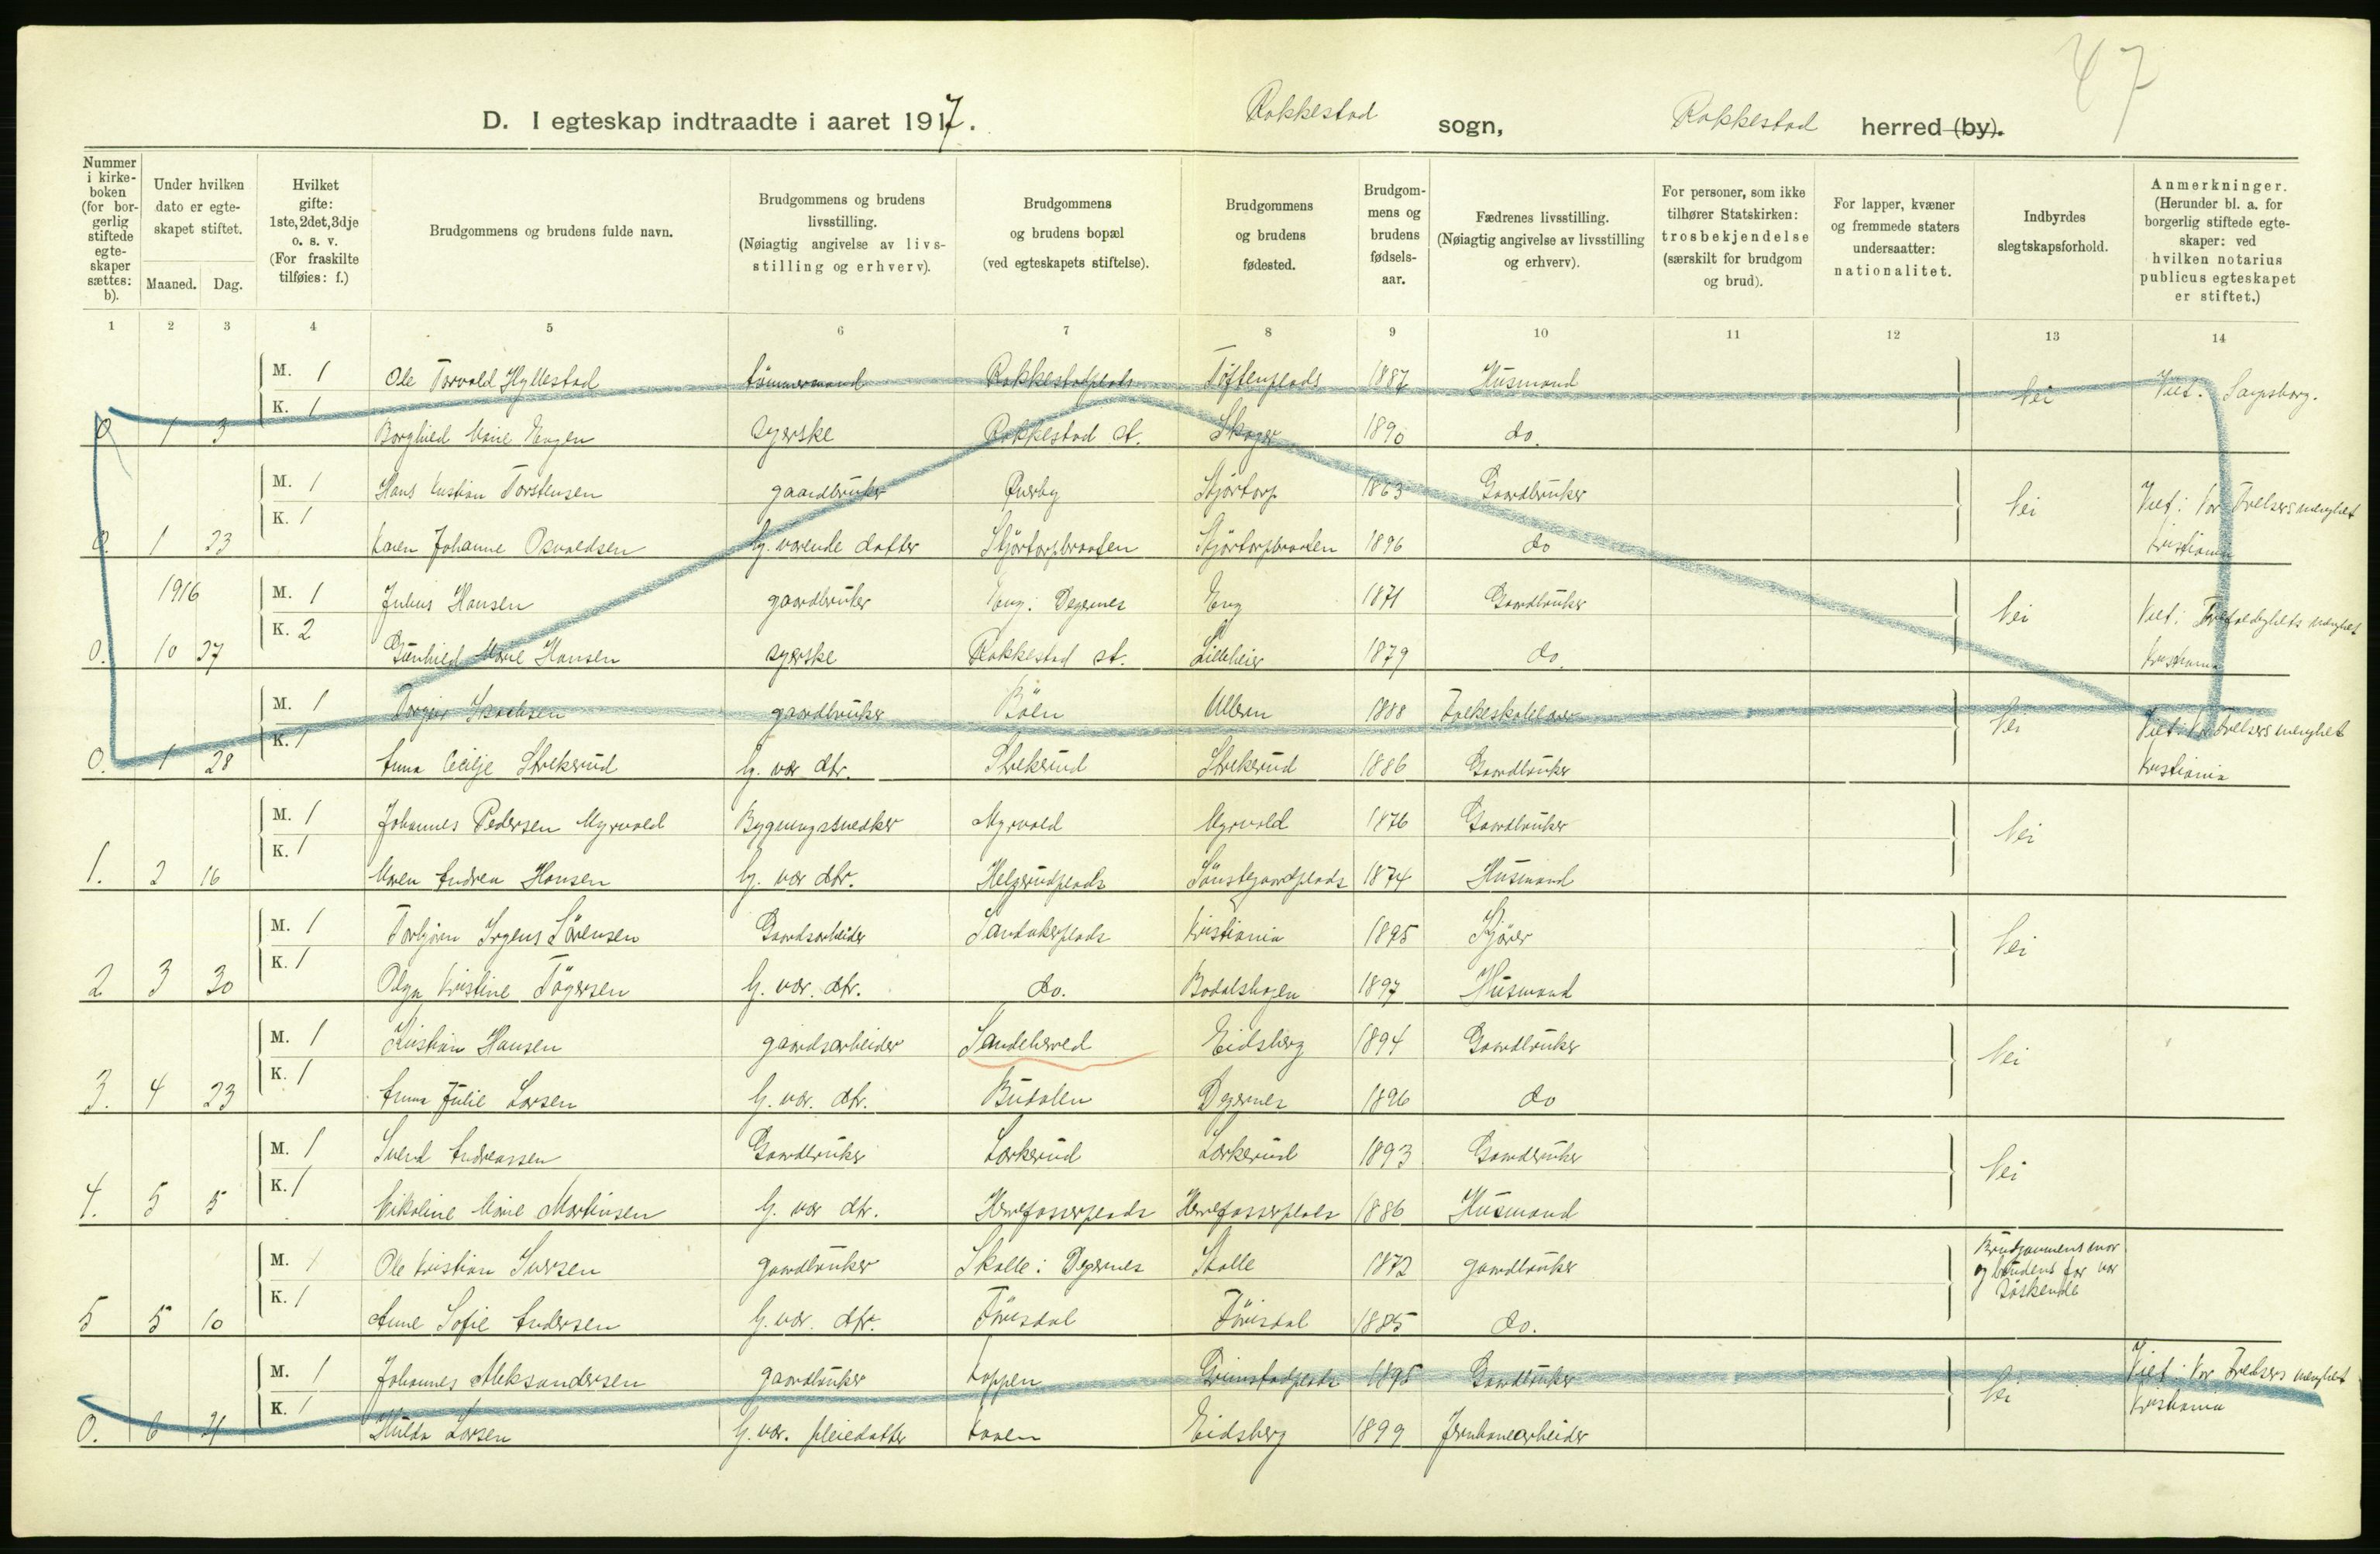 47
D. I egteskap indtraadte i aaret 1917. Rakkestad sogn, Rakkestad herred (by).
Nummer i kirkeboken (for borgerlig stiftede egteskaper sættes: b).
Under hvilken dato er egteskapet stiftet.
Maaned. Dag.
Hvilket gifte: 1ste, 2det, 3dje o. s. v. (For fraskilte tilføies: f.)
Brudgommens og brudens fulde navn.
Brudgommens og brudens livsstilling. (Nøiagtig angivelse av livsstilling og erhverv).
Brudgommens og brudens bopæl (ved egteskapets stiftelse).
Brudgommens og brudens fødested.
Brudgommens og brudens fødselsaar.
Fædrenes livsstilling. (Nøiagtig angivelse av livsstilling og erhverv).
For personer, som ikke tilhører Statskirken: trosbekjendelse (særskilt for brudgom og brud).
For lapper, kvæner og fremmede staters undersaatter: nationalitet.
Indbyrdes slegtskapsforhold.
Anmerkninger. (Herunder bl. a. for borgerlig stiftede egteskaper: ved hvilken notarius publicus egteskapet er stiftet.)
1 2 3 4 5 6 7 8 9 10 11 12 13 14
M. 1 Ole Torvald Hyllestad tømmermand Rakkestadplads Tøftenplads 1887 Husmand Nei Viet: Sarpsborg.
0 1 3 K. 1 Borghild Marie Engen syerske Rakkestad st. Skoger 1890 do.
M. 1 Hans Kristian Torstensen gaardbruker Østby Stjørtorp 1863 Gaardbruker Nei Viet: Vor Frelsers menighet
0. 1 23 K. 1 Karen Johanne Osvaldsen hj. værende datter Stjørtorpbraaten Stjørtorpbraaten 1896 do Kristiania
1916 M. 1 Julius Hansen gaardbruker Eng i Degernes Eng 1871 Gaardbruker Nei Viet: Trefoldighets menighet
0. 10 27 K. 2 Gunhild Marie Hansen syerske Rakkestad st. Lilleheier 1879 do. Kristiania
M. 1 Torger gaardbruker Bøen Ulleren 1888 Folkeskolelærer Nei Viet: Vor Frelsers menighet
0. 1 28 K. 1 Anna Cecilje Strekerud hj. vær dtr. Strekerud Strekerud 1886 Gaardbruker Kristiania
M. 1 Johannes Pedersen Myrvold Bygningssnedker Myrvold Myrvold 1876 Gaardbruker Nei
1. 2 16 K. 1 Maren Andrea Hansen hj. vær dtr. Helgerudplads 1874 Husmand
M. 1 Torbjørn Irgens Sørensen Gaardsarbeider Sandakerplads Kristiania 1895 Kjører Nei
2 3 30 K. 1 Olga Kristine Tøgersen hj. vær. dtr. do. Bodalshagen 1897 Husmand
M. 1 Kristian Hansen gaardsarbeider Sandeherred Eidsberg 1894 Gaardbruker Nei
3. 4 23 K. 1 Anna Julie Larsen hj. vær. dtr. Budalen Degernes 1896 do
M. 1 Svend Andreassen Gaardbruker Lørkerud Lørkerud 1893 Gaardbruker Nei
4. 5 5 K. 1 Nikoline Marie Martinsen hj. vær dtr. Herrefosserplads Herrefosserplads 1886 Husmand
M. 1 Ole Kristian Iversen gaardbruker Skolle i Degernes Skolle 1872 gaardbruker Brudgommens mor og brudens far var søskende
5 5 10 K. 1 Anne Sofie Andersen hj. vær. dtr. Førisdal Førisdal 1885 do.
M. 1 Johannes Aleksandersen gaardbruker Koppen Grimstadplads 1895 Gaardbruker Nei Viet: Vor Frelsers menighet
0. 6 21 K. 1 Hilda Larsen hj. vær. pleiedatter Kaaen Eidsberg 1899 Jernbanearbeider Kristiania